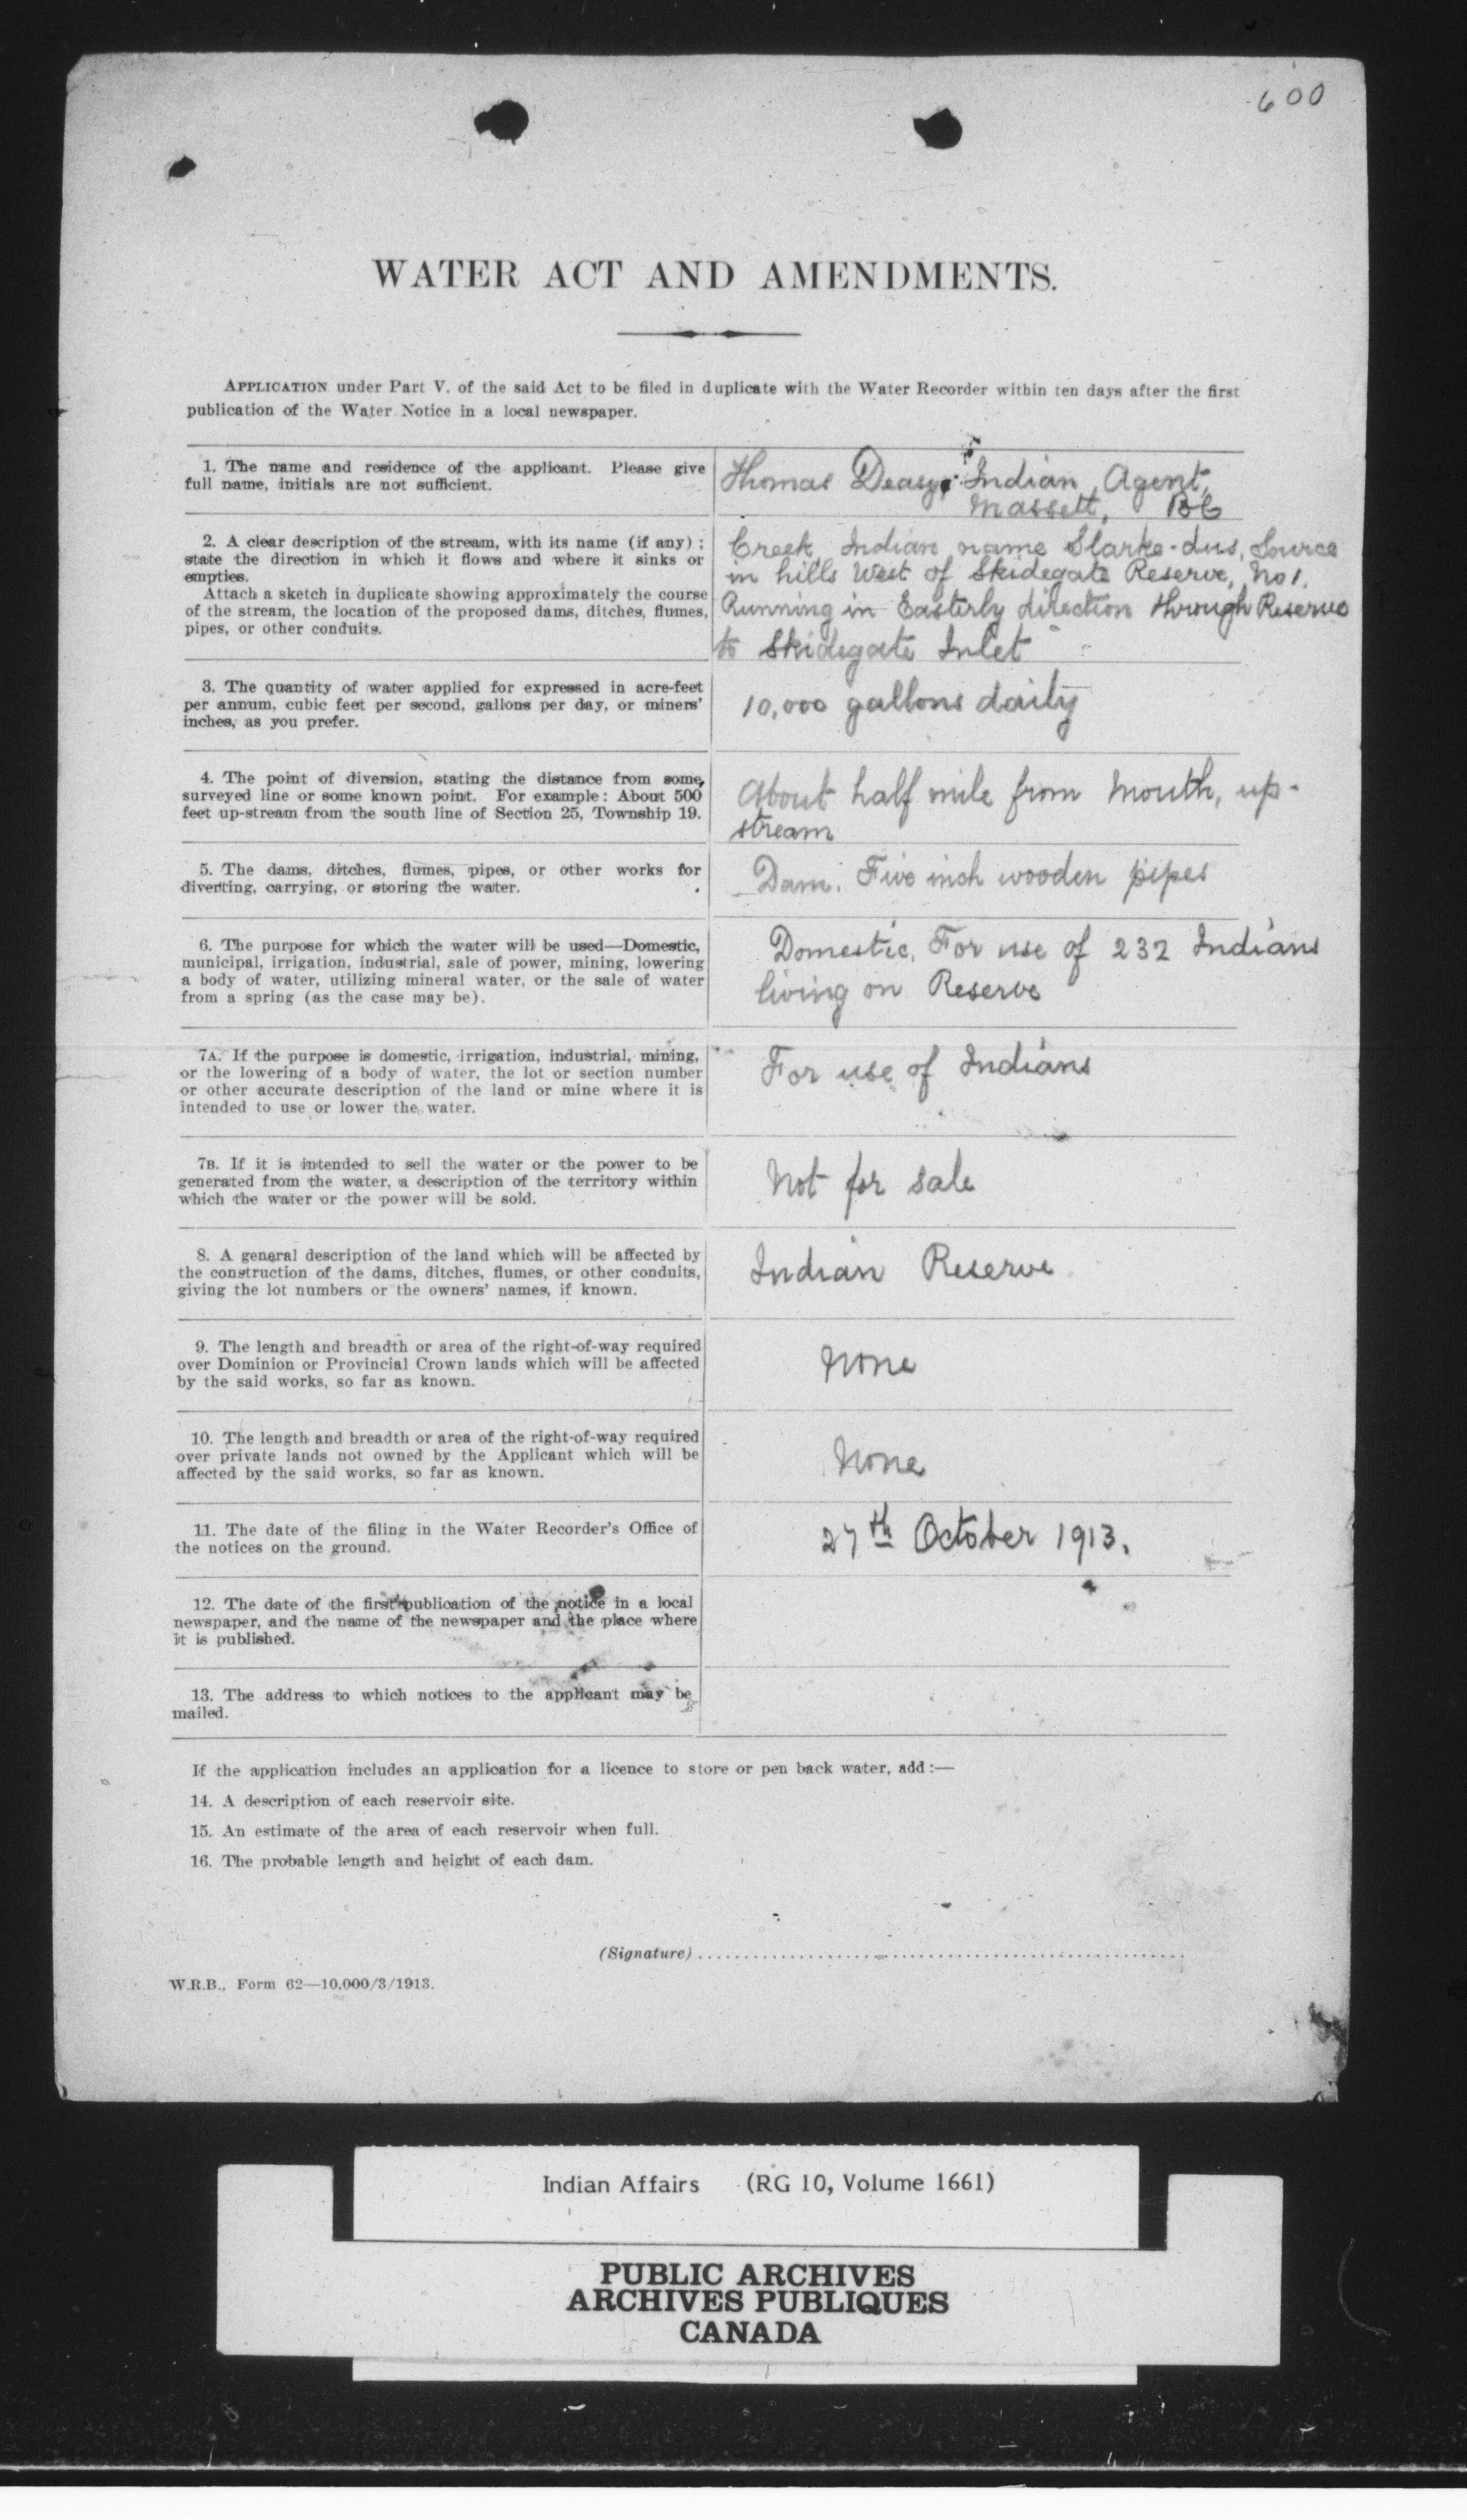 600
WATER ACT AND AMENDMENTS.
APPLICATION under Part V. of the said Act to be filed in duplicate with the Water Recorder within ten days after the first
publication of the Water Notice in a local newspaper.
1. The name and residence of the applicant. Please give
full name, initials are not sufficient.
Thomas Deasy, Indian Agent,
Massett, BC
2. A clear description of the stream, with its name (if any);
state the direction in which it flows and where it sinks or
empties.
Attach a sketch in duplicate showing approximately the course
of the stream, the location of the proposed dams, ditches, flumes,
pipes, or other conduits.
Creek, Indian name Slarke-dus, Source
in hills West of Skidegate Reserve, No 1.
Running in Easterly direction through Reserve
to Skidegate Inlet
3. The quantity of water applied for expressed in acre-feet
per annum, cubic feet per second, gallons per day, or miners'
inches, as you prefer.
10,000 gallons daily
4. The point of diversion, stating the distance from some
surveyed line or some known point. For example: About 500
feet up-stream from the south line of Section 25, Township 19.
About half mile from mouth, up-
stream
5. The dams, ditches, flumes, pipes, or other works for
diverting, carrying, or storing the water.
Dam. Five inch wooden pipes
6. The purpose for which the water will be used—Domestic,
municipal, irrigation, industrial, sale of power, mining, lowering
a body of water, utilizing mineral water, or the sale of water
from a spring (as the case may be).
Domestic. For use of 232 Indians
living on Reserve
7A. If the purpose is domestic, irrigation, industrial, mining,
or the lowering of a body of water, the lot or section number
or other accurate description of the land or mine where it is
intended to use or lower the water.
For use of Indians
7B. If it is intended to sell the water or the power to be
generated from the water, a description of the territory within
which the water or the power will be sold.
Not for sale
8. A general description of the land which will be affected by
the construction of the dams, ditches, flumes, or other conduits,
giving the lot numbers or the owners' names, if known.
Indian Reserve
9. The length and breadth or area of the right-of-way required
over Dominion or Provincial Crown lands which will be affected
by the said works, so far as known.
None
10. The length and breadth or area of the right-of-way required
over private lands not owned by the Applicant which will be
affected by the said works, so far as known.
None
11. The date of the filing in the Water Recorder's Office of
the notices on the ground.
27th October 1913.
12. The date of the first publication of the notice in a local
newspaper, and the name of the newspaper and the place where
it is published.
13. The address to which notices to the applicant may be
mailed.
If the application includes an application for a licence to store or pen back water, add:—
14. A description of each reservoir site.
15. An estimate of the area of each reservoir when full.
16. The probable length and height of each dam.
(Signature)
W.R.B., Form 62—10,000/3/1913.
Indian Affairs (RG 10, Volume 1661)
PUBLIC ARCHIVES
ARCHIVES PUBLIQUES
CANADA